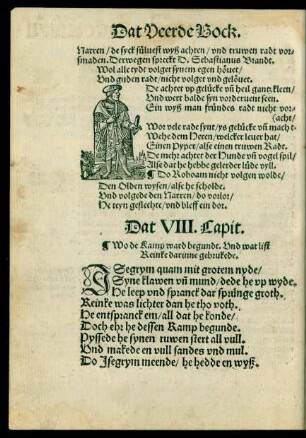 Dat Veerde Bock.
Narren / de syck sülvest wyß achten / vnd truwen radt vor-
smaden. Derwegen spreckt D. Sebastianus Brandt.
Wol alle tydt volget synem egen höuet /
Vnd guden radt / nicht volget vnd gelöuet.
De achtet vp gelücke vñ heil gantz kleen /
Vnd wert balde syn vorderuent seen.
Ein wyß man fründes radt nicht vor-
(acht /
Wor vele radt synt / ys gelücke vñ macht.
Wehe dem Heren / welcker leuer hat /
Einen Pyper / alse einen truwen Radt.
De mehr achtet der Hunde vñ vogel spil /
Alse dat he hebbe gelerder lüde vyll.
¶ Do Roboam nicht volgen wolde /
Den Olden wysen / alse he scholde.
Vnd volgede den Narren / do vorlor /
He teyn geslechte / vnd bleff ein dor.
Dat VIII. Capit.
¶ Wo de Kamp ward begunde. Vnd wat list
Reinke darinne gebrukede.
ISegrym quam mit grotem nyde /
Syne klawen vñ mund / dede he vp wyde.
He leep vnd spranck dar sprünge groth.
Reinke was lichter dan he tho voth.
He entspranck em / all dat he konde /
Doch ehr he dessen Kamp begunde.
Pyssede he synen ruwen stert all vull.
Vnd makede en vull sandes vnd mul.
Do Isegrym meende / he hedde en wyß.